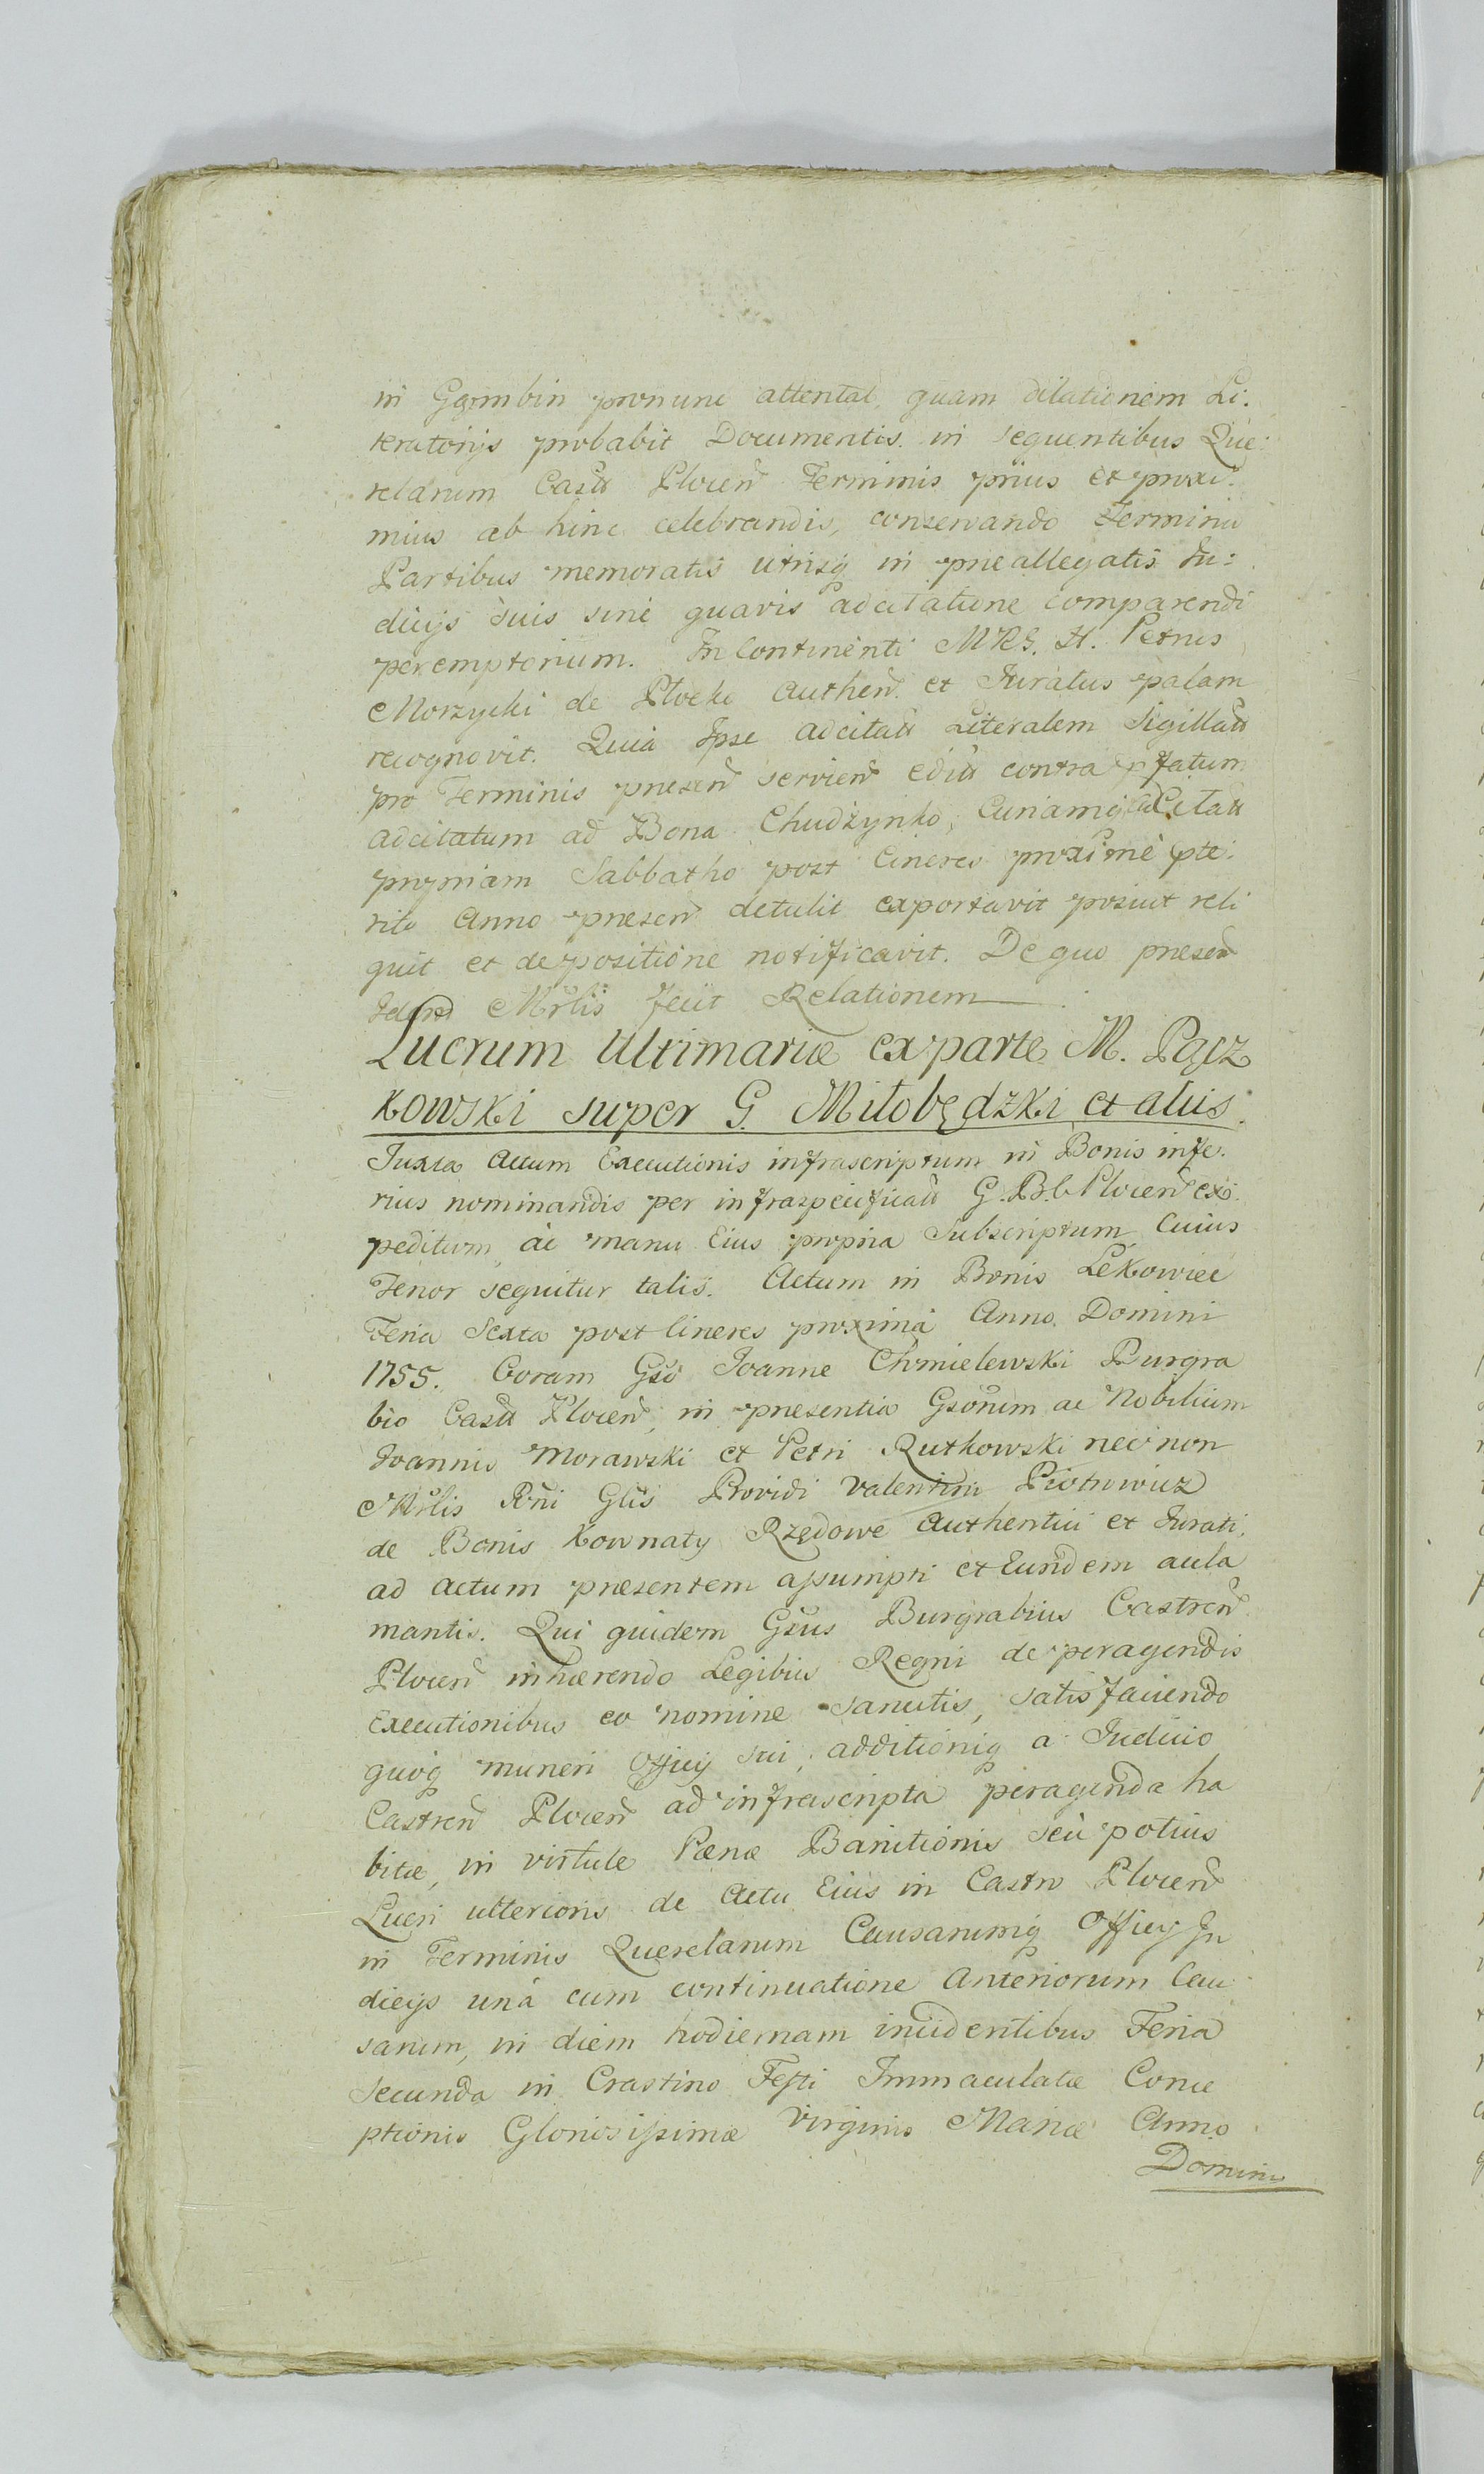 in Gąmbin pronunc attentat. quam dilationem Li:
teratorijs probabit Documentis in sequentibus Que:
relarum Castr Plocen Terminis prius et proxi:
mius ab hinc celebrandis, conservando Terminu
Partibus memoratis utrisq in praeallegatis Iu:
dicijs suis sine quavis adcitatione comparendi
peremptorium. In Continenti MRG. H. Petrus
Morzycki de Plocko Authen. et Iuratus palam
recognovit. Quia Ipse adcitatt Literalem Sigillatt
pro Terminis praesen servien editt contra pfatum
adcitatum ad Bona Chudzynko, Curiamq adCitatt
propriam Sabbatho post Cineres proxime pte:
rito Anno praesen detulit exportavit posuit reli
quit et de positione notificavit. De quo praesen
Idem Mrlis fecit Relationem
Lucrum Ultimariæ ex parte M. Pącz
kowski super G. Miłobędzki et aliis.
Iuxta Actum Executionis infrascriptum in Bonis infe:
rius nominandis per infraspecificatt G. B. C. Plocen ex:
peditum, ac manu Eius propria Subscriptum Cuius
Tenor sequitur talis. Actum in Bonis Lekowiec
Feria Sexta post Cineres proxima Anno Domini
1755. Coram Gso Ioanne Chmielewski Burgra
bio Castr Plocen, in praesentia Gsorum ac Nobilium
Ioannis Morawski et Petri Rutkowski nec non
Mrlis Rni Glis Providi Valentini Piotrowicz
de Bonis Kownaty Rzędowe Authentici et Iurati,
ad actum præsentem assumpti et Eundem acla
mantis. Qui quidem Gsus Burgrabius Castren
Plocen inhærendo Legibus Regni de peragendis
Executionibus eo nomine sancitis, satis faciendo
quoq muneri Officij sui, additioniq a Iudicio
Castren Plocen ad infrascripta peragenda ha
bitæ, in virtute Pænæ Banitionis seu potius
Lucri ulterioris de Actu Eius in Castro Plocen
in Terminis Querelarum Causarumq Officij Iu
dicijs una cum continuatione Anteriorum Cau
sarum, in diem hodiernam incidentibus Feria
Secunda in Crastino Festi Immaculatæ Conce
ptionis Gloriosissimæ Virginis Mariæ Anno
Domini